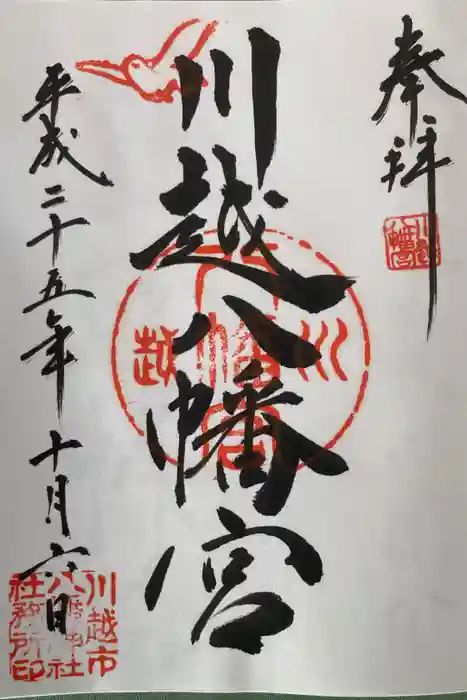 奉拝
川越八幡宮
平成二十五年十月六日
川越
八幡宮
川越市
八幡神社
社務所印